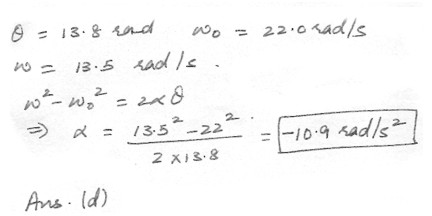 θ = 13.8 rad ω₀ = 22.0 rad/s
ω = 13.5 rad/s.
ω² - ω₀² = 2αθ
⇒ α = (13.5² - 22²) / (2 × 13.8) = -10.9 rad/s²
Ans. (d)